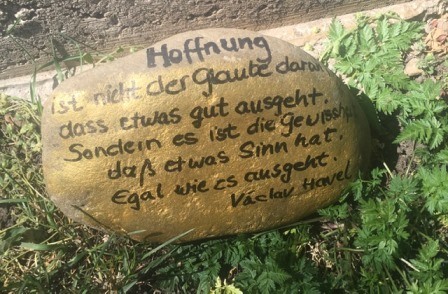 Hoffnung
ist nicht der Glaube daran
dass etwas gut ausgeht.
Sondern es ist die
daß etwas Sinn hat.
Egal wie es ausgeht.
Václav Havel